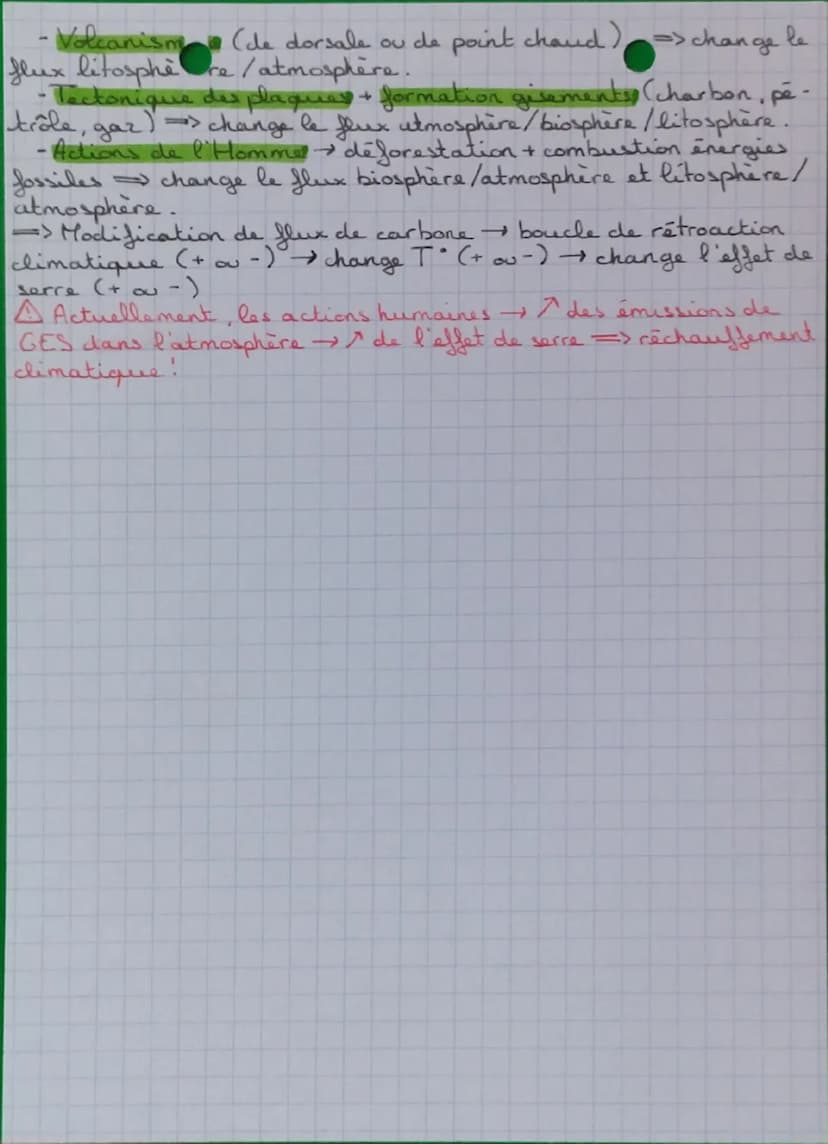 - Volcanisme (de dorsale ou de point chaud) => change le
flux litosphère/atmosphère.
- Tectonique des plaques + formation gisements (charbon, pé-
trôle, gaz) => change le flux atmosphère/biosphère/litosphère.
- Actions de l'Homme → déforestation + combustion énergies
fossiles => change le flux biosphère/atmosphère et litosphère/
atmosphère.
=> Modification de flux de carbone → boucle de rétroaction
climatique (+ ou -) → change T° (+ ou -) → change l'effet de
serre (+ ou -)
⚠ Actuellement, les actions humaines → ↗ des émissions de
GES dans l'atmosphère → ↗ de l'effet de serre => réchauffement
climatique !